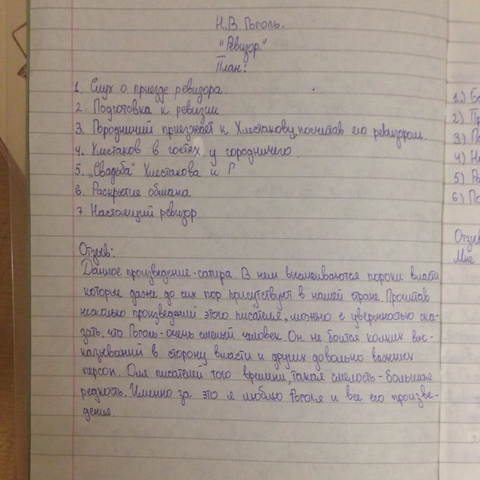 Н.В. Гоголь.
"Ревизор."
План:
1. Слух о приезде ревизора.
2. Подготовка к ревизии
3. Городничий приезжает к Хлестакову, посчитав его ревизором.
4. Хлестаков в гостях у городничего.
5. „Свадьба" Хлестакова и Г
6. Раскрытие обмана
7. Настоящий ревизор
Отзыв:
Данное произведение-сатира. В нем высмеиваются пороки власти
которые даже до сих пор присутствуют в нашей стране. Прочитав
несколько произведений этого писателя, можно с уверенностью ска-
зать, что Гоголь-очень смелый человек. Он не боится колких выс-
казываний в сторону власти и других довольно важных
персон. Для писателей того времени, такая смелость-большая
редкость. Именно за это я люблю Гоголя и все его произве-
дения.
1.)
2) Пр
3) По
4)
5) Ра
6) По
Отзыв
Мне